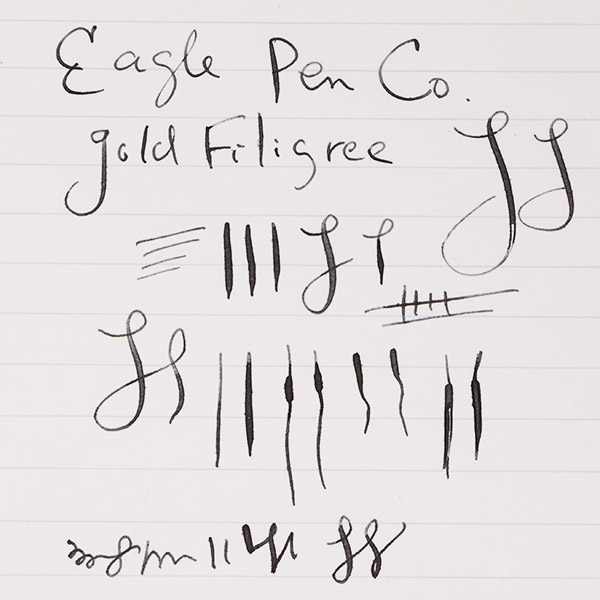 Eagle Pen Co.
gold Filigree